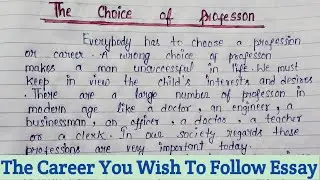 The Choice of Professon
Everybody has to choose a profession
or career. A wrong choice of professon
makes a man unsuccessful in life. We must
keep in view the child's interests and desires
. There are a large number of professon in
modern age like a doctor, an engineer, a
businessman, an officer, a doctor, a teacher
or a clerk. In our society regards those
professions are very important today.
The Career You Wish To Follow Essay